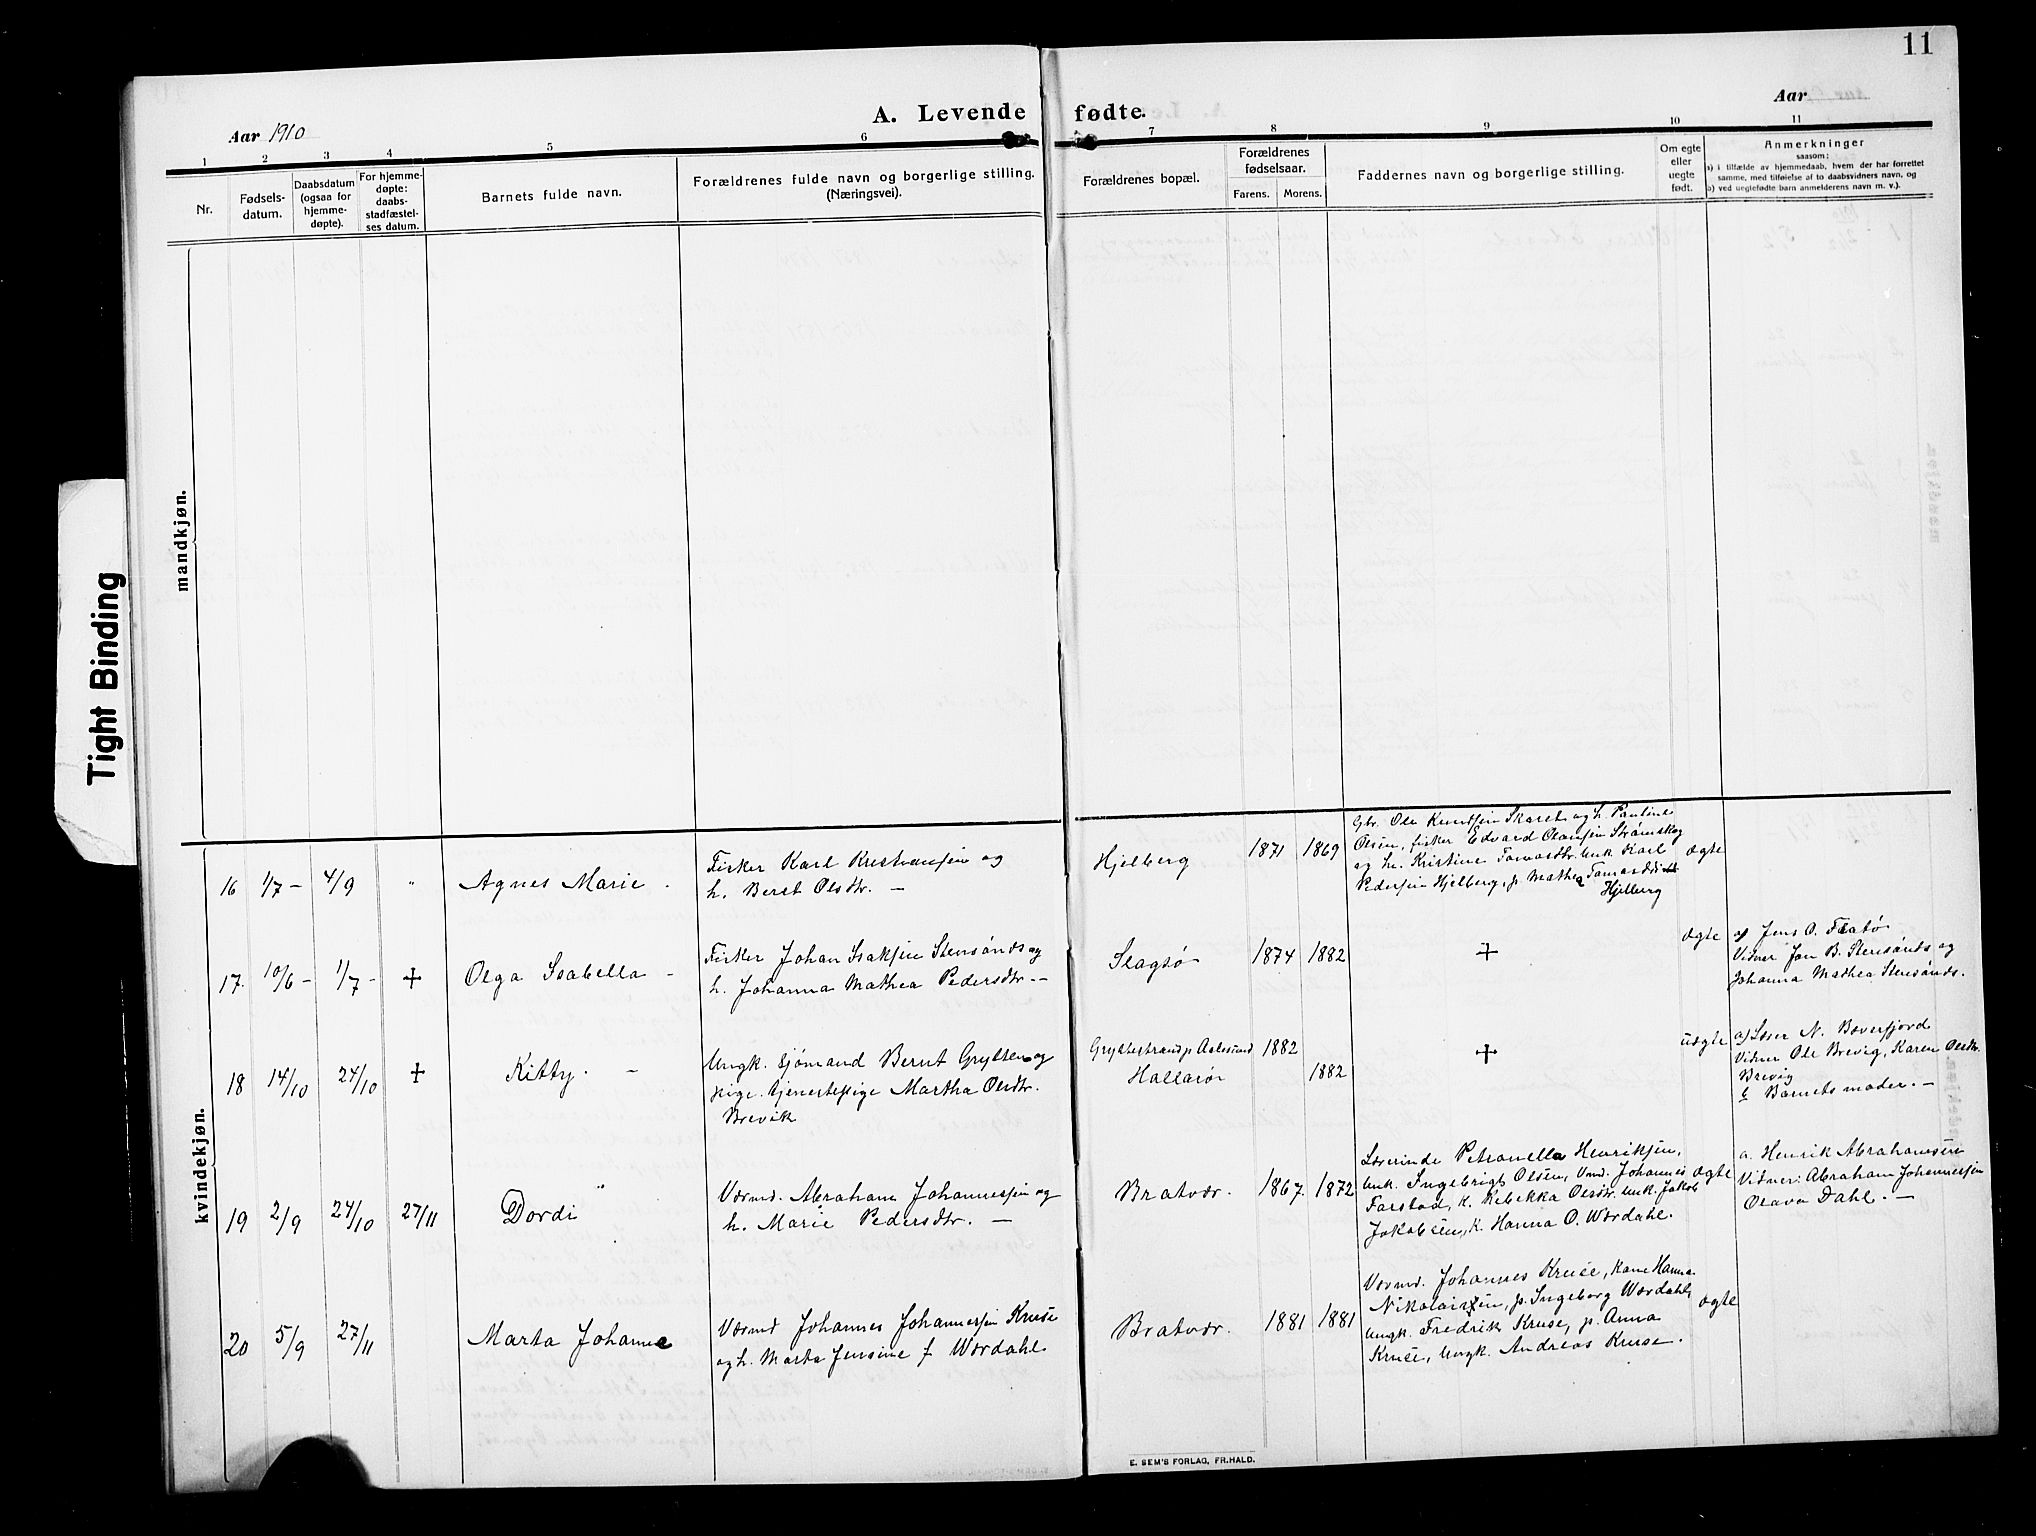 11
Aar 1910
A. Levende fødte.
Aar
1 2 3 4 5 6 7 8 9 10 11
Nr.
Fødsels-
datum.
Daabsdatum
(ogsaa for
hjemme-
døpte).
For hjemme-
døpte:
daabs-
stadfæstel-
ses datum.
Barnets fulde navn.
Forældrenes fulde navn og borgerlige stilling.
(Næringsvei).
Forældrenes bopæl.
Forældrenes
fødselsaar.
Farens. Morens.
Faddernes navn og borgerlige stilling.
Om egte
eller
uegte
født.
Anmerkninger
saasom:
a) i tilfælde av hjemmedaab, hvem der har forrettet
samme, med tilføielse af to daabsvidners navn, og
b) ved uegtefødte barn anmelderens navn m. v.).
mandkjøn.
Tight Binding
kvindekjøn.
16 1/7 – 4/9 " Agnes Marie
Fisker Karl Kristiansen og
h. Berst Olsdtr. –
Hjelberg 1871 1869
Gbr. Ole Knutsen Skaret og h. Pauline
Olsen, fisker Edvard Olausen Strømskag
og h. Kristine Tomasdtr. Unk. Karl
Pedersen Hjelberg, p. Mathea Tomasdtr
Hjelberg
ægte
17. 10/6 – 1/7 – + Olga Isabella –
Fisker Johan Isaksen Stensønds og
h. Johanna Mathea Pedersdtr. –
Slagsø 1874 1882 +
ægte
a) Jens O. Flatø
Vidner Jon B. Stensønds og
Johanna Mathea Stensønds.
18 14/10 24/10 + Kitty. –
Ungk. sjømand Bernt Grytten og
pige. tjenestepige Martha Olsdtr.
Brevik
Gryttestrand p. Aalesund 1882
Hallarør 1882
+
uægte
a) Løser N. Bæverfjord
Vidner Ole Brevig, Karen Olsdtr.
Brevig
b Barnets moder. –
19 2/9 24/10 27/11 Dordi
Værmd. Abraham Johannessen og
h. Marie Pedersdtr. –
Bratvær. 1867. 1872
Lærerinde Petronella Henriksen,
unk. Ingebrigt Olsen, vmd. Johannes
Farstad, k. Rebekka Olsdtr. unk. Jakob
Jakobsen, k. Hanna O. Værdahl.
ægte
a. Henrik Abrahamsen
Vidner: Abraham Johannessen
Olava Dahl. –
20 5/9 27/11 Marta Johanne
Værmd Johannes Johannessen Kruse
og h. Marta Jensine f. Værdahl.
Bratvær. 1881 1881
Værmd. Johannes Kruse, Kone Hanna
Nikolaisen, p. Ingeborg Værdahl,
ungk. Fredrik Kruse, p. Anna
Kruse, Ungk. Andreas Kruse.
ægte
E. SEM'S FORLAG, FR.HALD.